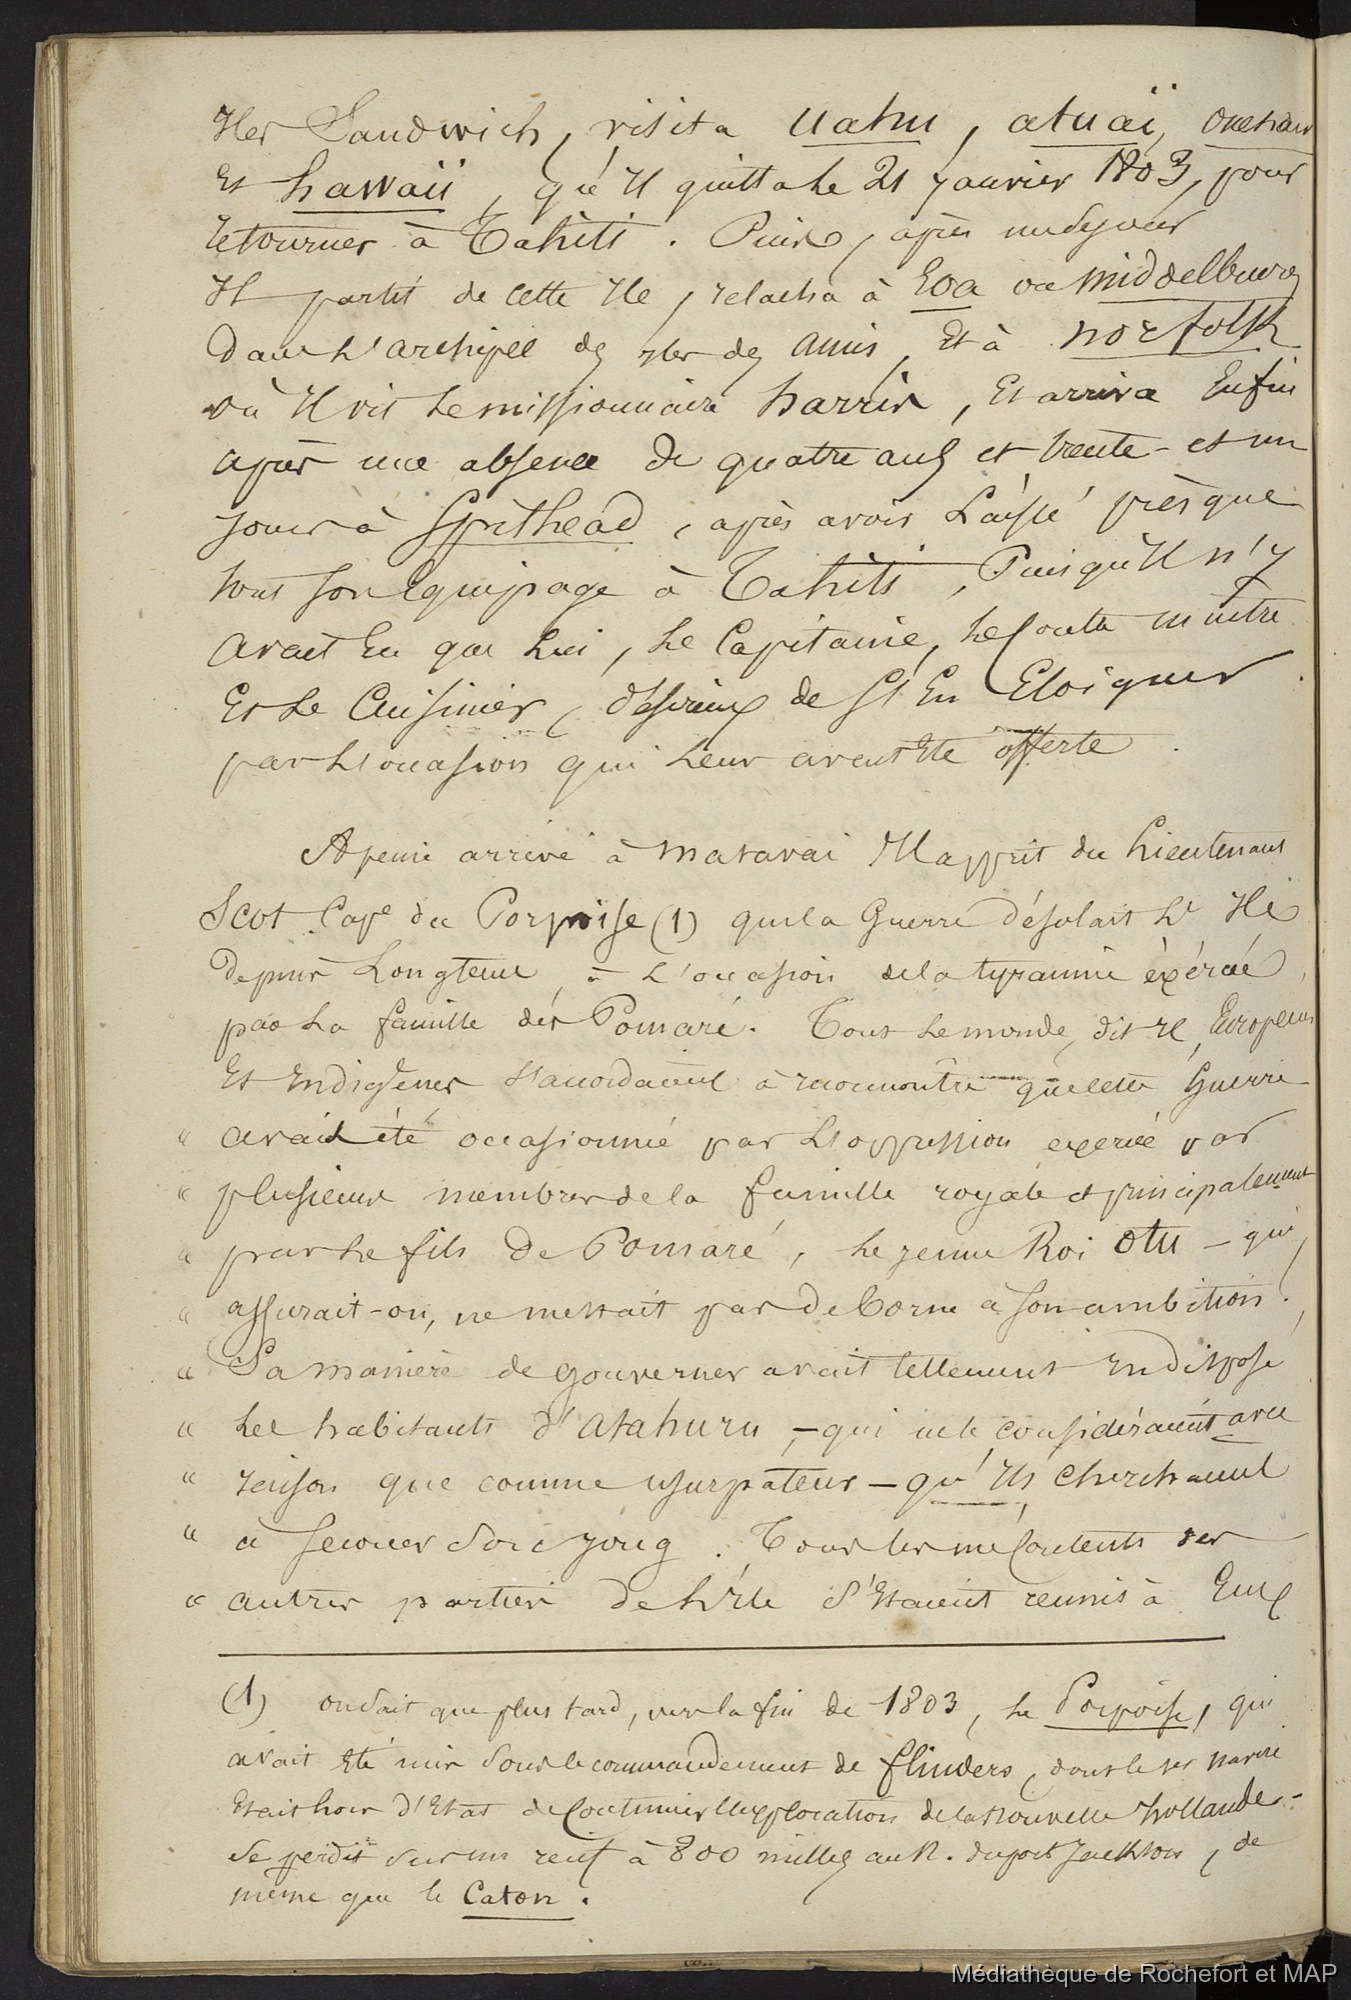 Iles Sandwich, visita Uahu, atuaï, Onehau
Et hawaii, qu'Il quitta le 21 Janvier 1803, pour
retourner à Tahiti. Puis, après un séjour
Il partit de cette Ile, relacha à Eoa ou middelburg
dans L'archipel des Iles des amis, Et à norfolk
où Il vit le missionnaire harris, Et arriva Enfin
après une absence de quatre ans et trente-et un
jours à Spithéad, après avoir Laissé présque
tout son Equipage à Tahiti, Puisqu'Il n'y
avait Eu que Lui, Le Capitaine, le Contre maitre
Et Le Cuisinier, désireux de s'En Eloigner
par L'occasion qui Leur avait Eté offerte.
A peine arrivé à matavai Il apprit du Lieutenant
Scot Cape du Porpoise (1) que la Guerre désolait L'Ile
depuis Longtems, à L'occasion de la tyrannie éxércée,
par La famille des Pomaré. Tout le monde, dit Il, Européens
Et Indigènes s'accordaient à reconnoitre que cette Guerre
" avait été occasionnée par L'oppression exercée par
" plusieurs membres de la famille royale et principalement
" par le fils de Pomaré, le jeune Roi Otu - qui,
" assurait-on, ne mettait pas de borne à son ambition.
" Sa manière de gouverner avait tellement Indisposé
" Les habitants d'Atahuru, - qui ne le considéraient avec
" raison que comme usurpateur - qu'Ils cherchaient
" à secouer Son joug. Tous les mécontents des
" autres parties de L'Ile s'Etaient reunis à Eux
(1) on Sait que plus tard, vers la fin de 1803, le Porpoise, qui
avait Eté mis Sous le commandement de flinders, dont le 1er navire
Etait hors d'Etat de Continuer L'exploration de la Nouvelle hollande -
Se perdit Sur un recif à 800 milles au N. du port Jackson, de
même que le Caton.
Médiathèque de Rochefort et MAP